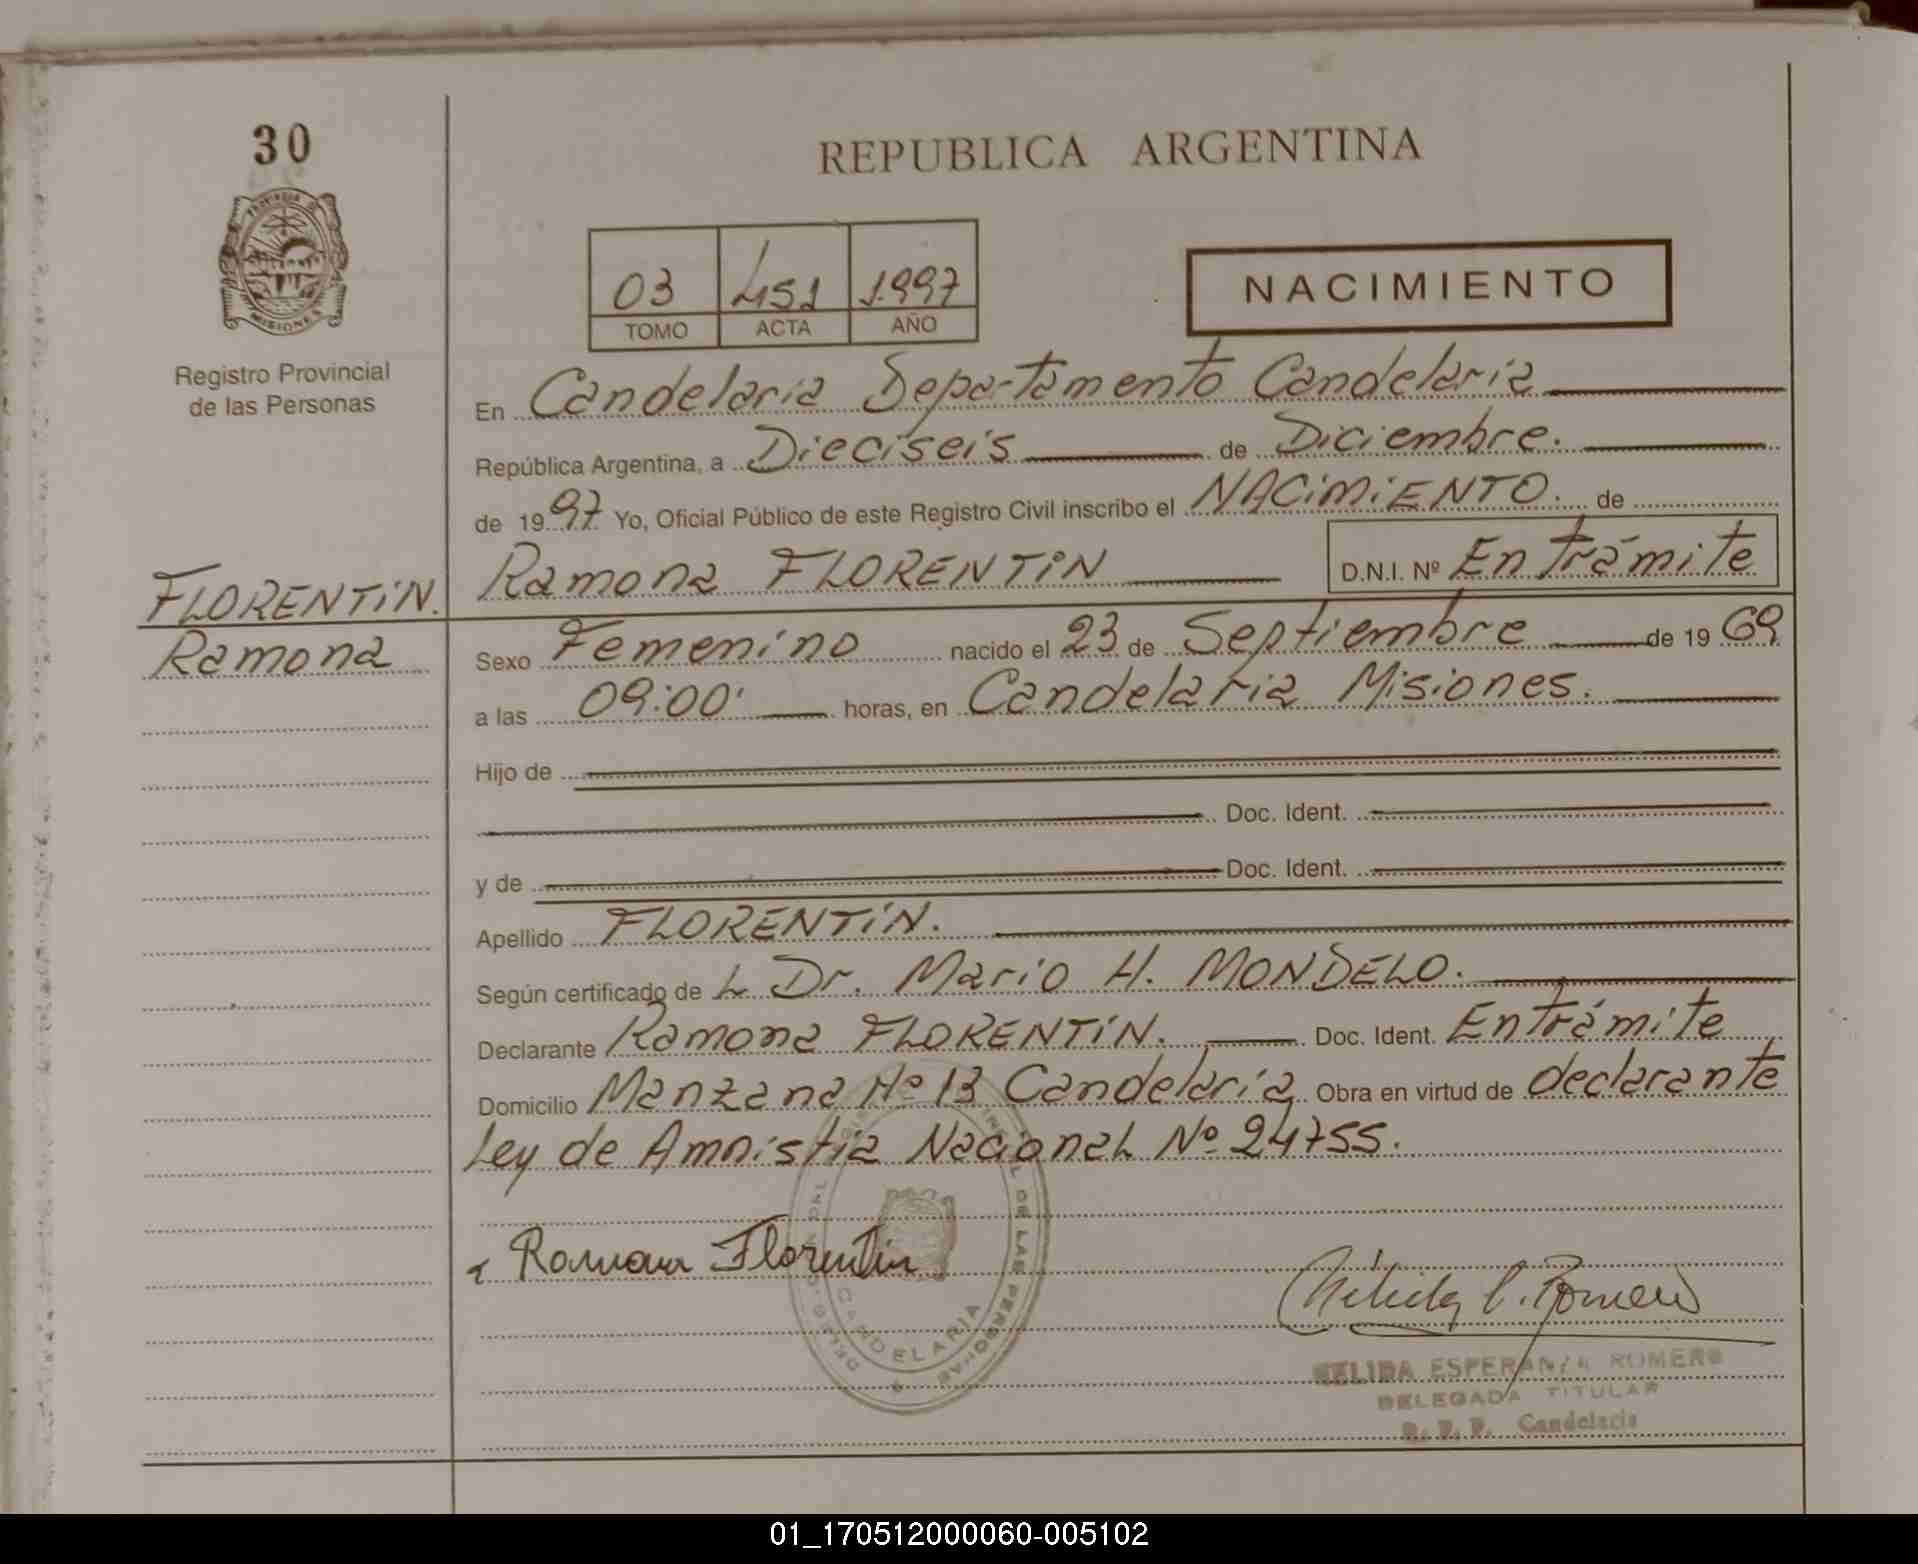 30
PROVINCIA DE
MISIONES
Registro Provincial
de las Personas
REPUBLICA ARGENTINA
03 451 1.997
TOMO ACTA AÑO
NACIMIENTO
En Candelaria Departamento Candelaria
República Argentina, a Dieciseis de Diciembre.
de 1997 Yo, Oficial Público de este Registro Civil inscribo el NACIMIENTO. de
FLORENTíN. Ramona FLORENTíN D.N.I. Nº En trámite
Ramona
Sexo Femenino nacido el 23 de Septiembre de 1969
a las 09:00' horas, en Candelaria Misiones.
Hijo de
Doc. Ident.
y de Doc. Ident.
Apellido FLORENTíN.
Según certificado de L Dr. Mario H. MONDELO.
Declarante Ramona FLORENTíN. Doc. Ident. En trámite
Domicilio Manzana Nº 13 Candelaria Obra en virtud de declarante
Ley de Amnistia Nacional Nº 24755.
Ramona Florentin
DE LAS PERSONAS
CANDELARIA
Nélida E. Romero
NELIDA ESPERANZA ROMERO
DELEGADA TITULAR
R. P. P. Candelaria
01_170512000060-005102